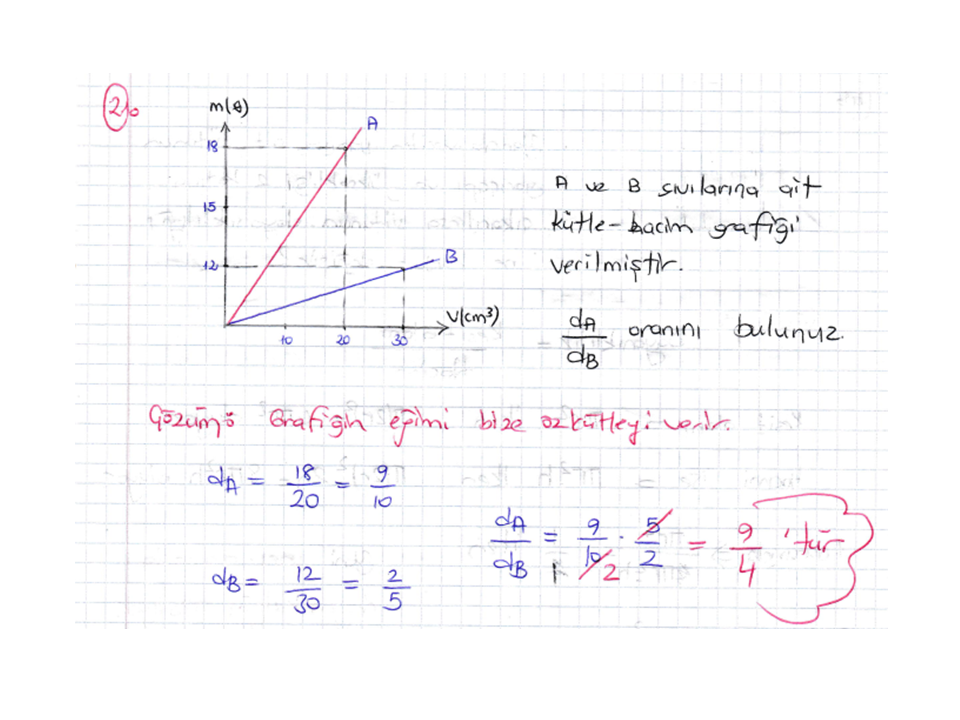 21.
m(g)
A
18
15
12
B
V(cm³)
10 20 30
A ve B sıvılarına ait
kütle-hacim grafiği
verilmiştir.
dA/dB oranını bulunuz.
Çözüm: Grafiğin eğimi bize özkütleyi verir.
dA = 18/20 = 9/10
dB = 12/30 = 2/5
dA/dB = 9/10 2 . 5/2 = 9/4 'tür